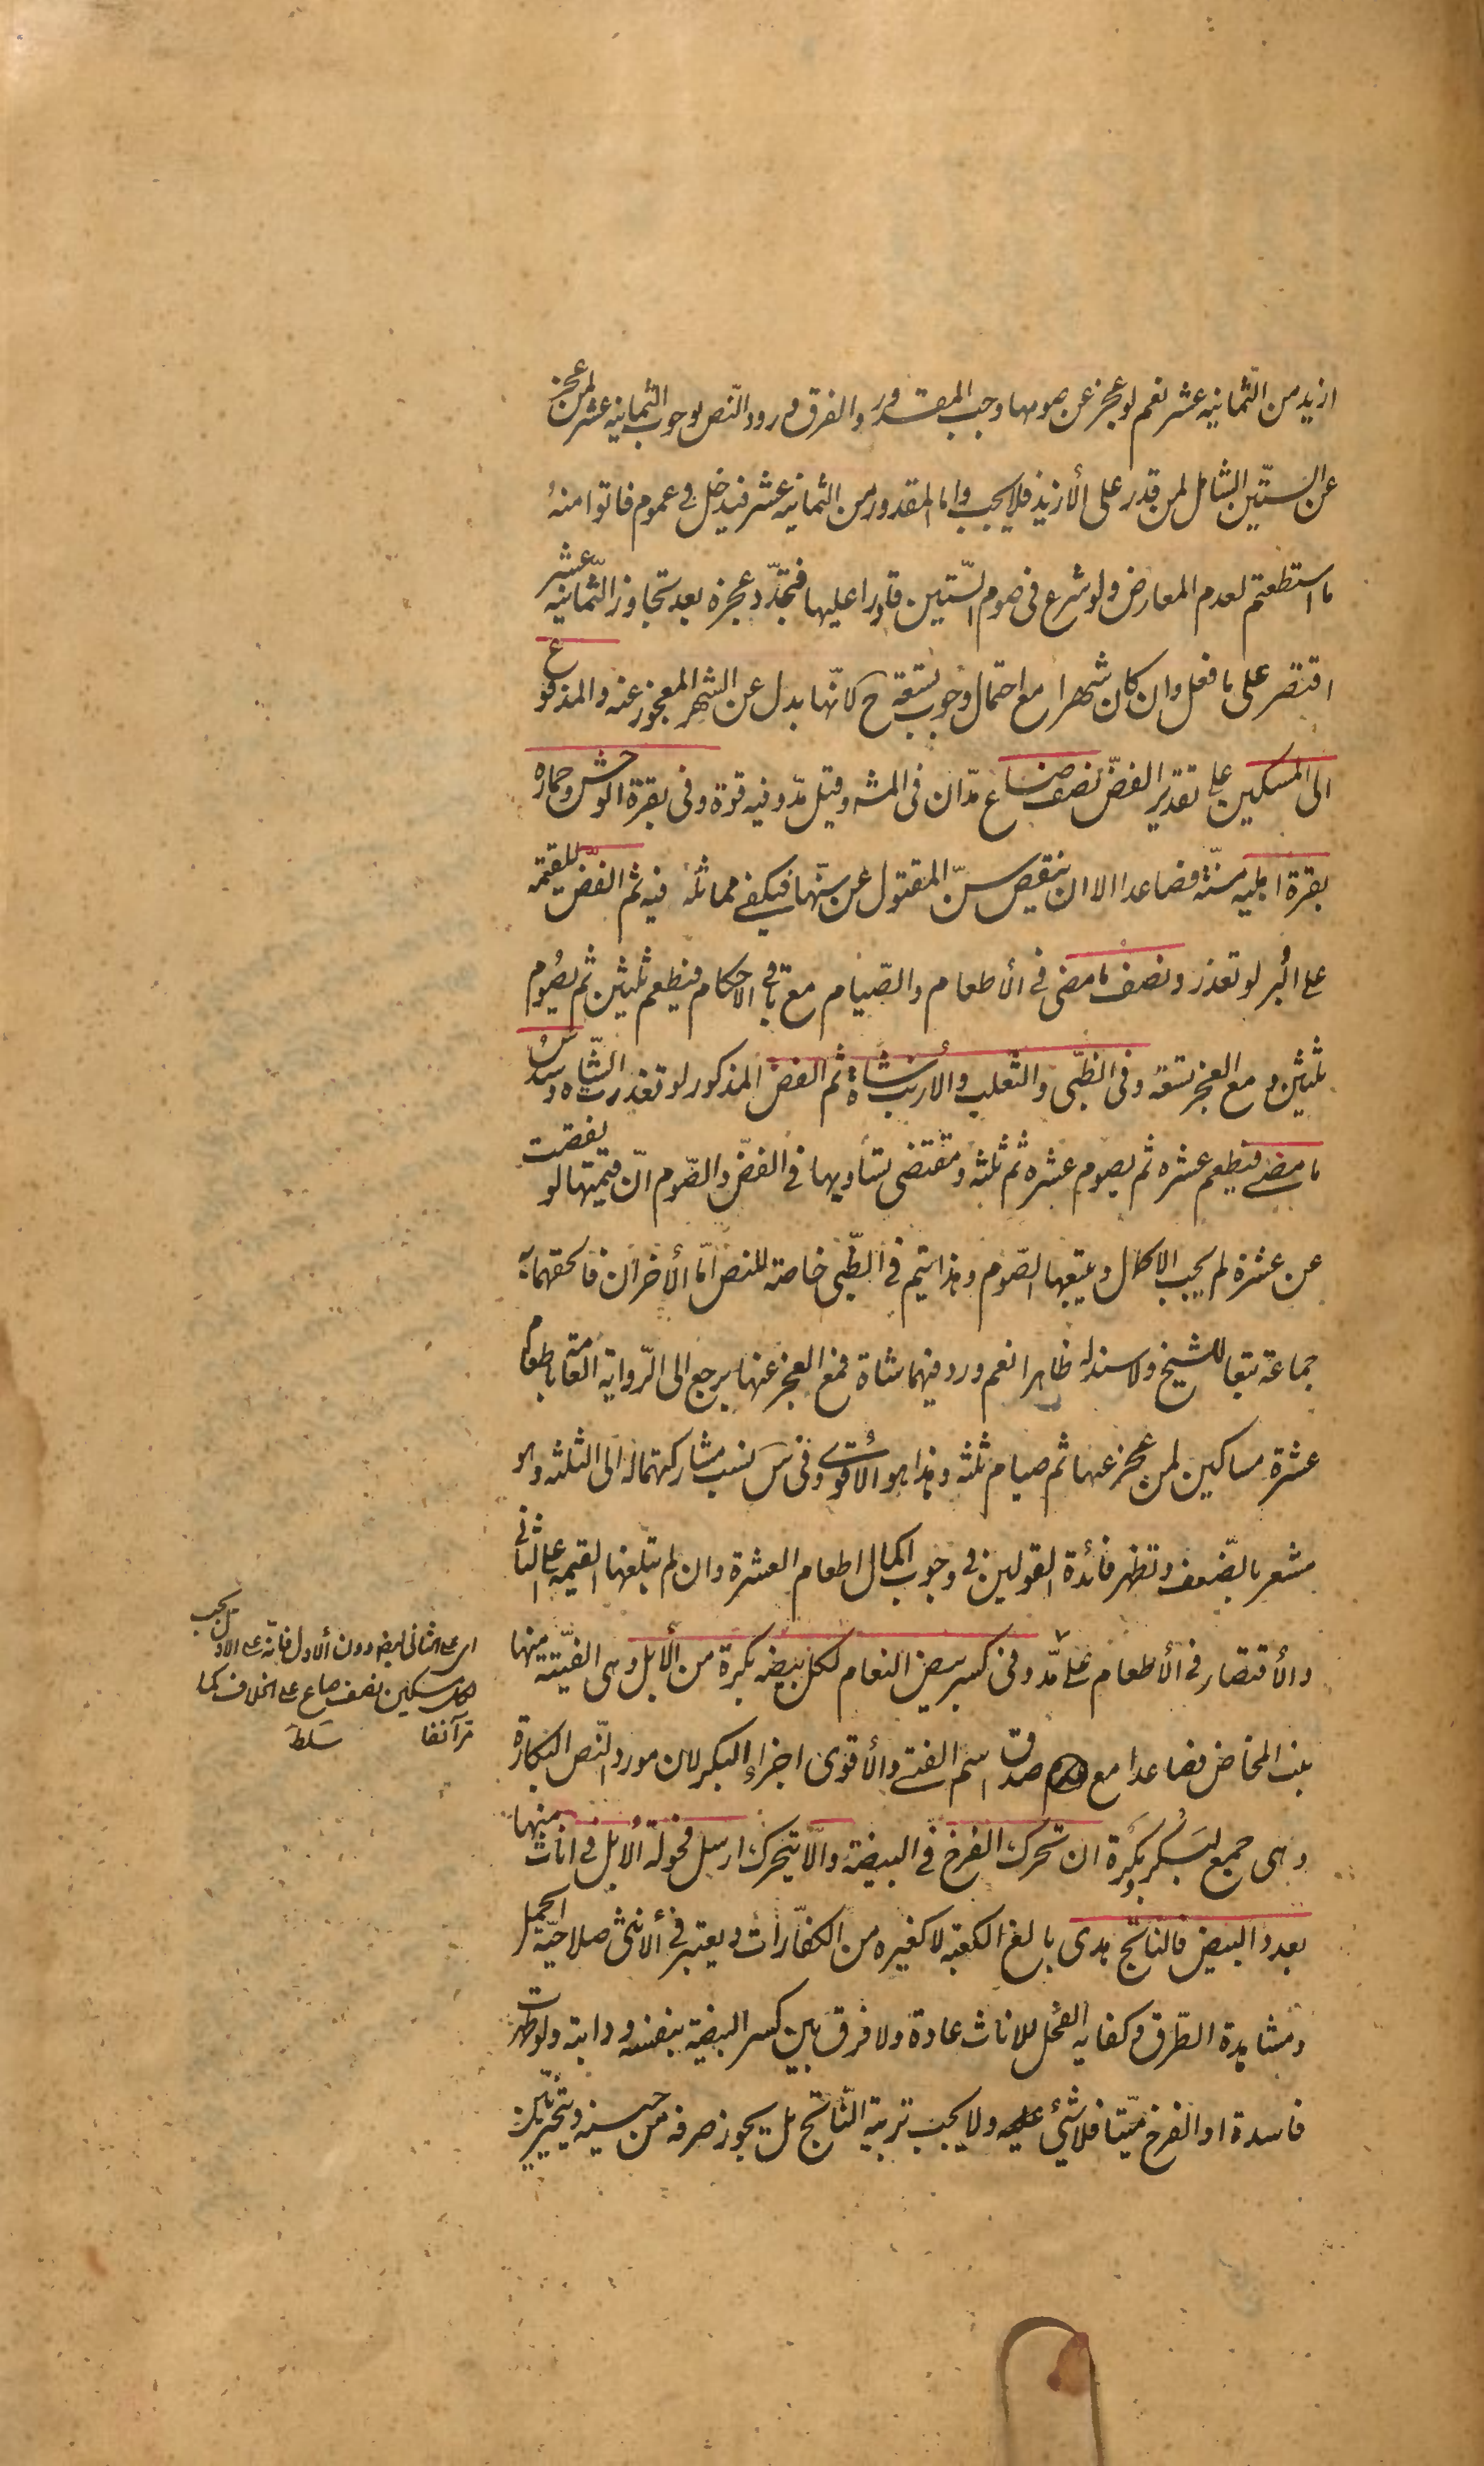 ازيد من الثمانيه عشر نعم لو عجز عن صومها وجب المقدور والفرق ورود النّص بوجوب الثمانيه عشر لمن عجز
عن الستّين الشامل لمن قدر على الأزيد فلا يجب واما المقدور من الثمانيه عشر فيدخل فى عموم فاتوا منهُ
ما استطعتم لعدم المعارض ولو شرع فى صوم الستّين قادرا عليها فتجدّد عجزه بعد تجاوز الثّمانيه عشر
اقتصر على ما فعل وان كان شهرا مع احتمال وجوب تسعة ح لانّها بدل عن الشهر المعجوز عنه والمدفوع
الى المسكين على تقدير الفضّ نصف صاع مدّان فى المشه وقيل مدّ وفيه قوة وفى بقرة الوحش وحماره
بقرة اهليه مسنّة فصاعدا الا ان ينقص سنّ المقتول عن سنّها فيكفى مماثله فيه ثم الفضّ للقيمة
على البر لو تعذر ونصف ما مضى فى الأطعام والصّيام مع باقى الاحكام فيطعم ثلثين ثم يصوم
ثلثين ومع العجز تسعة وفى الظّبى والثّعلب والأرنب شاة ثم الفضّ المذكور لو تعذرت الشّاه وسدسُ
ما مضى فيطعم عشره ثم يصوم عشره ثم ثلثه ومقتضى تساويها فى الفضّ والصّوم انّ قيمتها لو نقصت
عن عشرة لم يجب الاكمال ويتبعها الصّوم وهذا يتم فى الظّبى خاصة للنص امّا الأخران فالحقهما به
جماعة تبعا للشيخ ولا سند له ظاهرا نعم ورد فيهما شاة فمع العجز عنها يرجع الى الرّواية العامة باطعام
عشرة مساكين لمن عجز عنها ثم صيام ثلثه وهذا هو الاقوى وفى س نسب مشاركتهما له الى الثلثه وهو
مشعر بالضّعف وتظهر فائدة القولين فى وجوب اكمال اطعام العشرة وان لم تبلغها القيمه على الثانى
والأقتصار فى الأطعام على مدّ وفى كسر بيض النعام لكل بيضه بكرة من الأبل وهى الفتيّة منها
بنت المخاض فصاعدا مع صدق اسم الفتى والأقوى اجزاء البكر لان مورد النّص البكارة
وهى جمع لبكر وبكرة ان تحرك الفرخ فى البيضة والّا يتحرك ارسل فحولة الأبل فى اناث منها
بعدد البيض فالناتج هدى بالغ الكعبة لا كغيره من الكفّارات ويعتبر فى ألانثى صلاحيّة الحمل
ومشاهدة الطّرق وكفاية الفحل للاناث عادة ولا فرق بين كسر البيضة بنفسه ودابته ولو ظهرت
فاسدة او الفرخ ميّتا فلا شئ عليه ولا يجب تربية النّاتج بل يجوز صرفه من حينه ويتخير بين
اى على الثانى ايضا دون الاول فانّه على الاول يجب
لكل مسكين نصف صاع على الخلاف كما
مرّ آنفا سلط